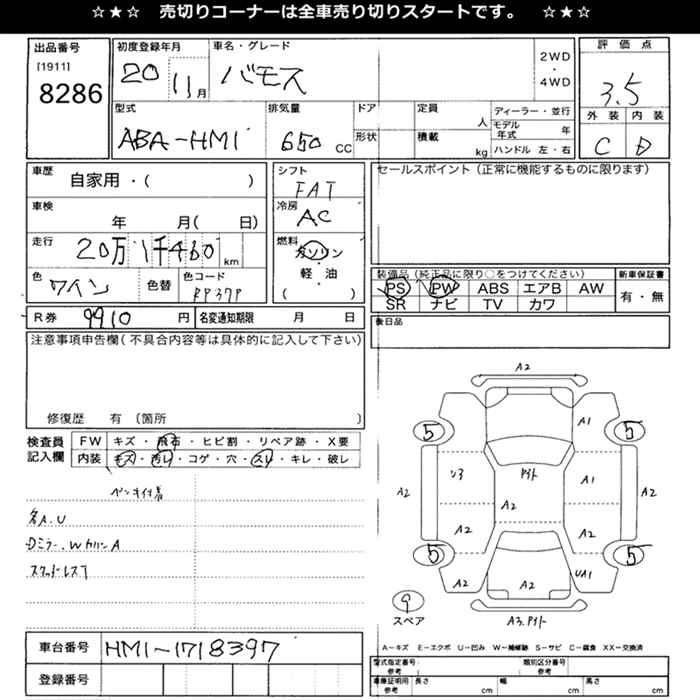 ☆★☆ 売切りコーナーは全車売り切りスタートです。 ☆★☆
出品番号 初度登録年月 車名・グレード 2WD・4WD 評価点
[1911]
8286 20 11月 バモス 3.5
型式 排気量 ドア 定員 人 ディーラー・並行 外装 内装
ABA-HM1 650 CC 形状 積載 kg モデル年式 年 C D
ハンドル 左・右
車歴 自家用・( ) シフト FAT セールスポイント(正常に機能するものに限ります)
車検 年 月( 日) 冷房 AC
走行 20万1千460 km 燃料 ガソリン・軽・油 ( )
色 ワイン 色替 色コード RP37P
装備品(純正品に限り○をつけてください) 新車保証書
PS PW ABS エアB AW 有・無
SR ナビ TV カワ
R券 9910 円 名変通知期限 月 日 後日品
注意事項申告欄(不具合内容等は具体的に記入して下さい)
修復歴 有 (箇所 )
検査員記入欄 FW キズ・飛石・ヒビ割・リペア跡・X要
内装 キズ・汚レ・コゲ・穴・スレ・キレ・破レ
ペンキ付着
各A.U
Dミラー.WカバーA
スペアタイヤ
A2
A1
5 5
A2 A1 A2
A2
A2 A2
5 5
A2 A2 UA1
9
スペア
A3.
A-キズ E-エクボ U-凹み W-補修跡 S-サビ C-腐食 XX-交換済
車台番号 HM1-1718397
登録番号
型式指定番号: 参考 類別区分番号 参考
車庫証明用 参考 長さ cm 幅 cm 高さ cm